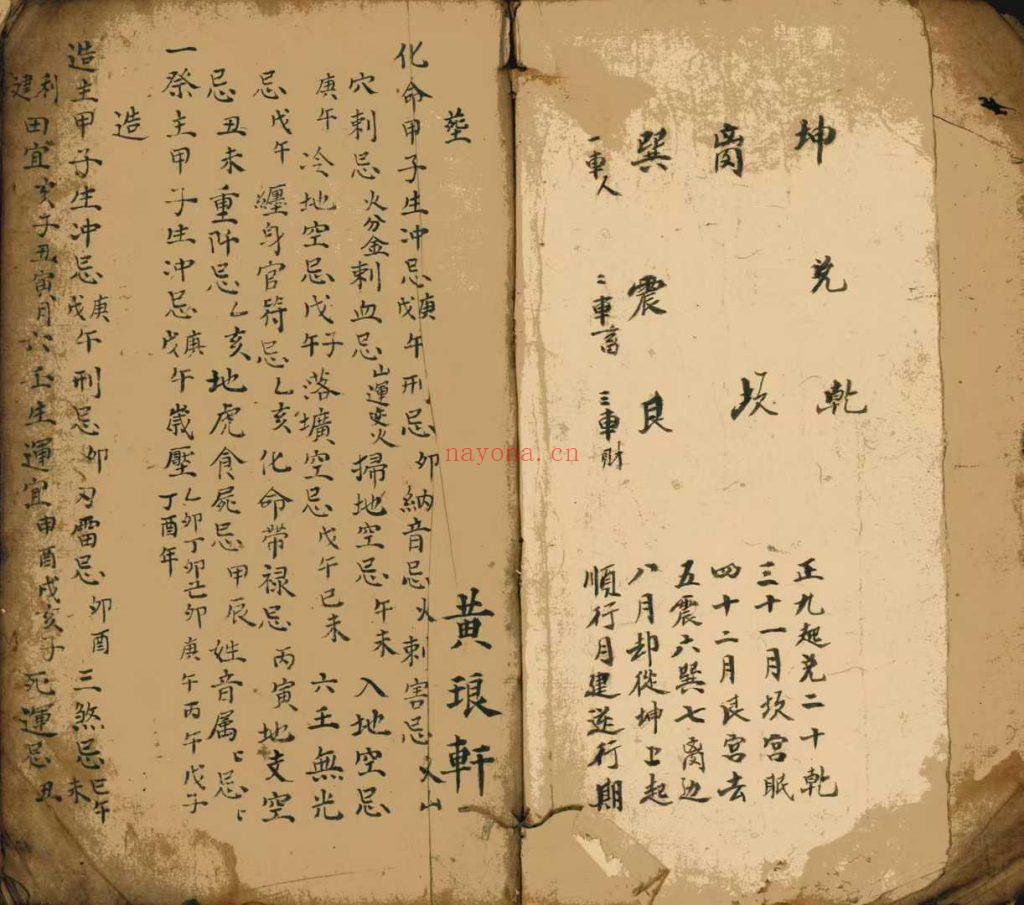 坤
離
巽
兌
震
乾
坎
艮
一車人
二車畜
三車財
正九起兌二十乾
三十一月坎宮眠
四十二月艮宮去
五震六巽七離边
八月却從坤上起
順行月建逆行期
黃琅軒
塟
化命甲子生冲忌庚戊午刑忌卯納音忌火刺害忌火山
穴刺忌火分金刺血忌山運变火掃地空忌午未 入地空忌
庚午 冷地空忌戊午子落壙空忌戊午已未 六壬無光
忌戊午 纏身官符忌乙亥化命带禄忌丙寅地支空
忌丑未重阡忌乙亥地虎食屍忌甲辰姓音属忌
一祭主甲子生冲忌庚戊午歲壓乙卯丁卯 卯庚午丙午戊子丁酉年
造
造主甲子生冲忌庚戊午刑忌卯刃雷忌卯酉三煞忌巳午未
利建田宜亥子丑寅月六壬生運宜申酉戌亥子死運忌丑
nayona.cn